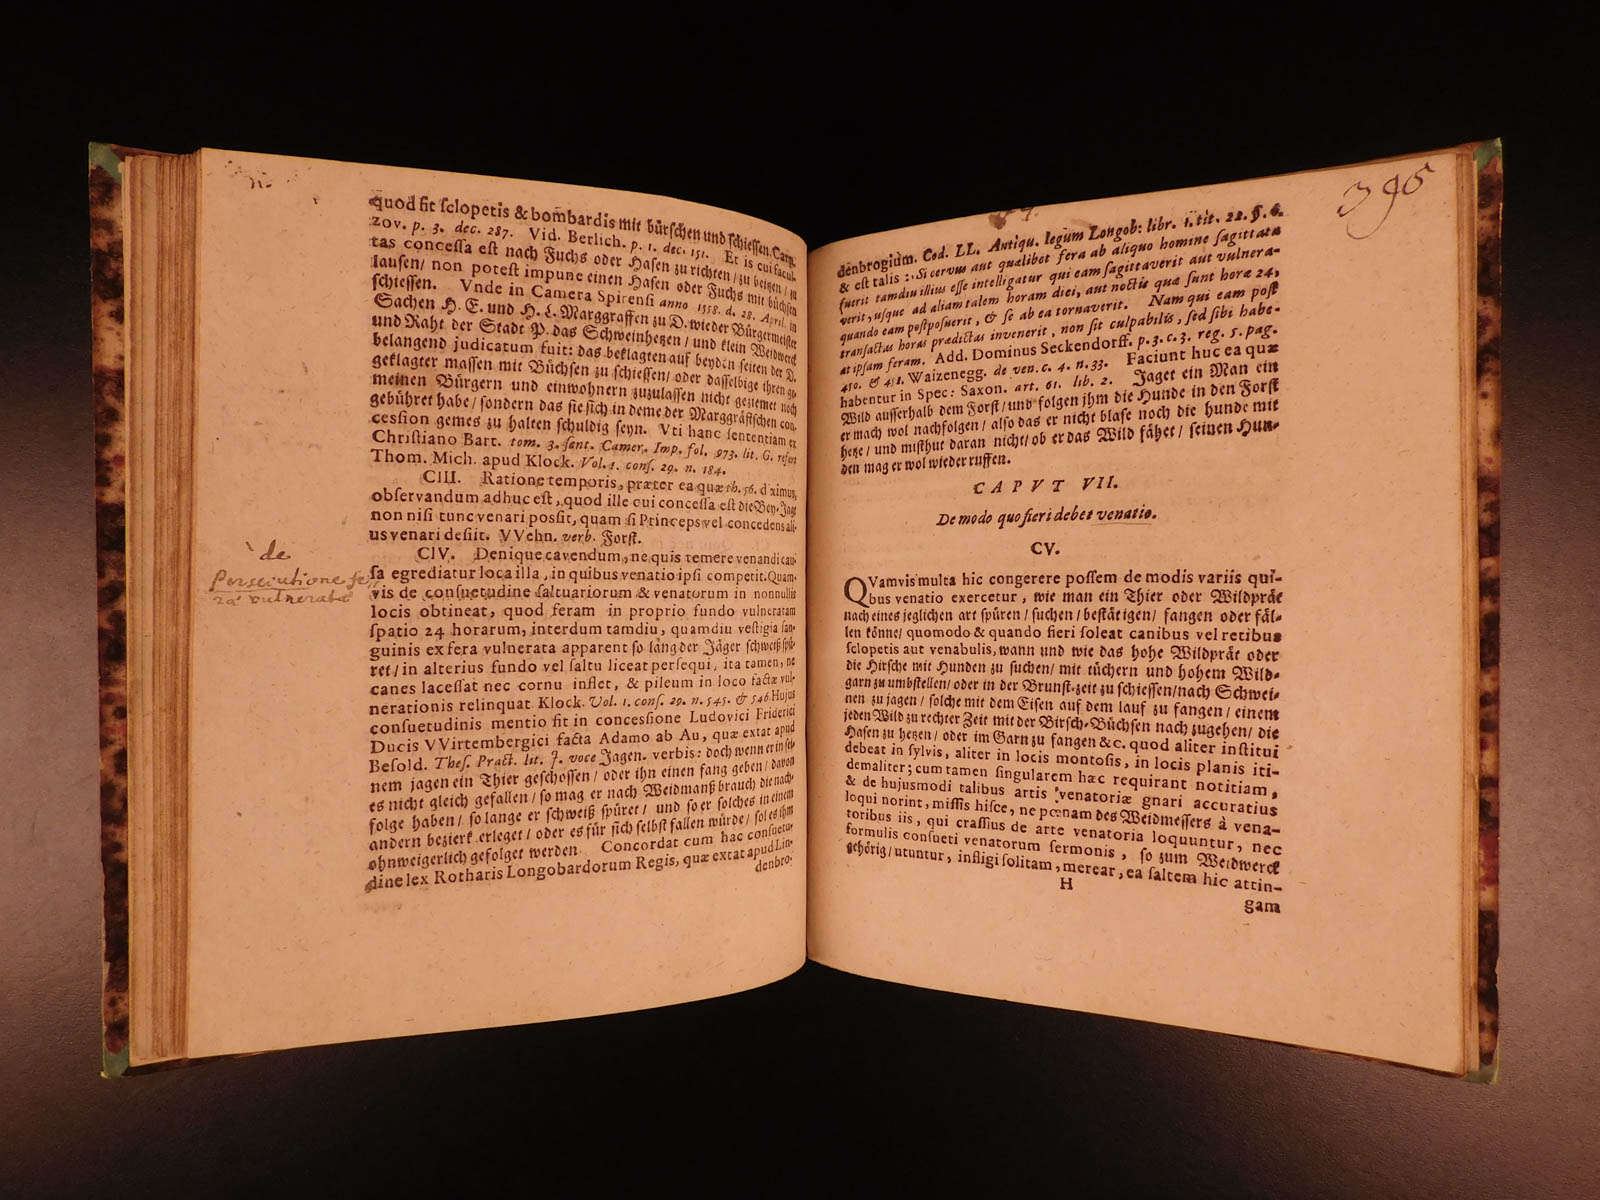 quod fit sclopetis & bombardis mit bürschen und schiessen. Carp-
zov. p. 3. dec. 287. Vid. Berlich. p. 1. dec. 151. Et is cui facul-
tas concessa est nach Fuchs oder Hasen zu richten/ zu beitzen/ zu
lausen/ non potest impune einen Hasen oder Fuchs mit büchsen
schiessen. Vnde in Camera Spirensi anno 1558. d. 28. April. in
Sachen H. E. und H. L. Marggraffen zu D. wieder Bürgermeister
und Raht der Stadt P. das Schweinhetzen/ und klein Weidwerck
belangend judicatum fuit: das beklagten auf beyden seiten der D.
geklagter massen mit Büchsen zu schiessen/ oder dasselbige ihren ge-
meinen Bürgern und einwohnern zuzulassen nicht geziemet noch
gebühret habe/ sondern das sie sich in deme der Marggräfischen con-
cession gemes zu halten schuldig seyn. Vti hanc sententiam ex
Christiano Bart. tom. 3. sent. Camer. Imp. fol. 973. lit. G. refert
Thom. Mich. apud Klock. Vol. 1. cons. 29. n. 184.
CIII. Ratione temporis, præter ea quæ th. 56. diximus,
observandum adhuc est, quod ille cui concessa est die Bey-Jagt
non nisi tunc venari possit, quam si Princeps vel concedens ali-
us venari desiit. VVehn. verb. Forst.
CIV. Denique cavendum, ne quis temere venandi cau-
sa egrediatur loca illa, in quibus venatio ipsi competit. Quam-
vis de consuetudine saltuariorum & venatorum in nonnullis
locis obtineat, quod feram in proprio fundo vulneratam
spatio 24 horarum, interdum tamdiu, quamdiu vestigia san-
guinis ex fera vulnerata apparent so lang der Jäger schweiß spü-
ret/ in alterius fundo vel saltu liceat persequi, ita tamen, ne
canes lacessat nec cornu inflet, & pileum in loco factæ vul-
nerationis relinquat Klock. Vol. 1. cons. 29. n. 545. & 546. Hujus
consuetudinis mentio fit in concessione Ludovici Friderici
Ducis VVirtembergici facta Adamo ab Au, quæ extat apud
Besold. Thes. Pract. lit. J. voce Jagen. verbis: doch wenn er in sei-
nem jagen ein Thier geschossen/ oder ihn einen fang geben/ davon
es nicht gleich gefallen/ so mag er nach Weidmanß brauch die nach-
folge haben/ so lange er schweiß spüret/ und so er solches in einem
andern bezierk erleget/ oder es für sich selbst fallen würde/ sol es ihm
ohnweigerlich gefolget werden. Concordat cum hac consuetu-
dine lex Rotharis Longobardorum Regis, quæ extat apud Lin-
denbro-
de
Persecutione fe-
ræ vulneratæ
396
denbrogium. Cod. LL. Antiqu. legum Longob: libr. 1. tit. 22. §. 6.
& est talis: Si cervus aut quælibet fera ab aliquo homine sagittata
fuerit tamdiu illius esse intelligatur qui eam sagittaverit aut vulnera-
verit, usque ad aliam talem horam diei, aut noctis quæ sunt horæ 24,
quando eam postposuerit, & se ab ea tornaverit. Nam qui eam post
transactas horas prædictas invenerit, non sit culpabilis, sed sibi habe-
at ipsam feram. Add. Dominus Seckendorff. p. 3. c. 3. reg. 5. pag.
450. & 451. Waizenegg. de ven. c. 4. n. 33. Faciunt huc ea quæ
habentur in Spec: Saxon. art. 61. lib. 2. Jaget ein Man ein
Wild ausserhalb dem Forst/ und folgen jhm die Hunde in den Forst
er mach wol nachfolgen/ also das er nicht blase noch die hunde mit
hetze/ und misthut daran nicht/ ob er das Wild fähet/ seinen Hun-
den mag er wol wieder ruffen.
CAPVT VII.
De modo quo fieri debet venatio.
CV.
QVamvis multa hic congerere possem de modis variis qui-
bus venatio exercetur, wie man ein Thier oder Wildprät
nach eines jeglichen art spüren/ suchen/ bestätigen/ fangen oder fäl-
len könne/ quomodo & quando fieri soleat canibus vel retibus
sclopetis aut venabulis, wann und wie das hohe Wildprät oder
die Hirsche mit Hunden zu suchen/ mit tüchern und hohem Wild-
garn zu umbstellen/ oder in der Brunst-zeit zu schiessen/ nach Schwei-
nen zu jagen/ solche mit dem Eisen auf dem lauf zu fangen/ einem
jeden Wild zu rechter Zeit mit der Birsch-Büchsen nach zugehen/ die
Hasen zu hetzen/ oder im Garn zu fangen &c. quod aliter institui
debeat in sylvis, aliter in locis montosis, in locis planis iti-
demaliter; cum tamen singularem hæc requirant notitiam,
& de hujusmodi talibus artis venatoriæ gnari accuratius
loqui norint, missis hisce, ne pœnam des Weidmessers à vena-
toribus iis, qui crassius de arte venatoria loquuntur, nec
formulis consueti venatorum sermonis, so zum Weidwerck
gehörig/ utuntur, infligi solitam, merear, ea saltem hic attin-
H
gam